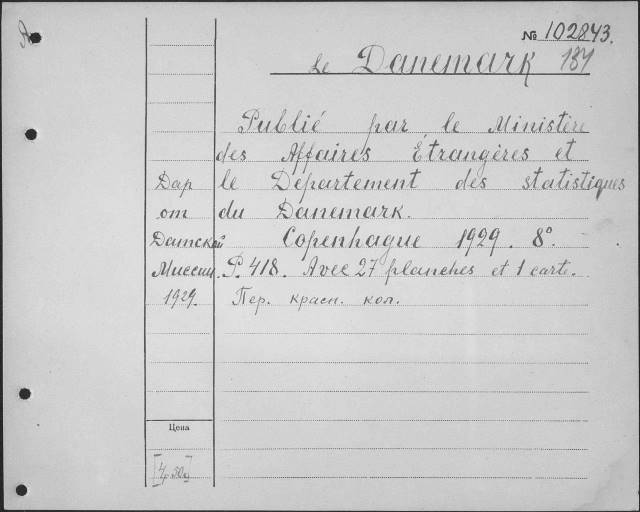 № 102843.
Le Danemark
Publié par le Ministère
des Affaires Étrangères et
le Département des statistiques
du Danemark.
Copenhague 1929. 8°
P. 418. Avec 27 planches et 1 carte.
Пер. красн. кол.
Дар
от
Датской
Миссии.
1929.
Цена